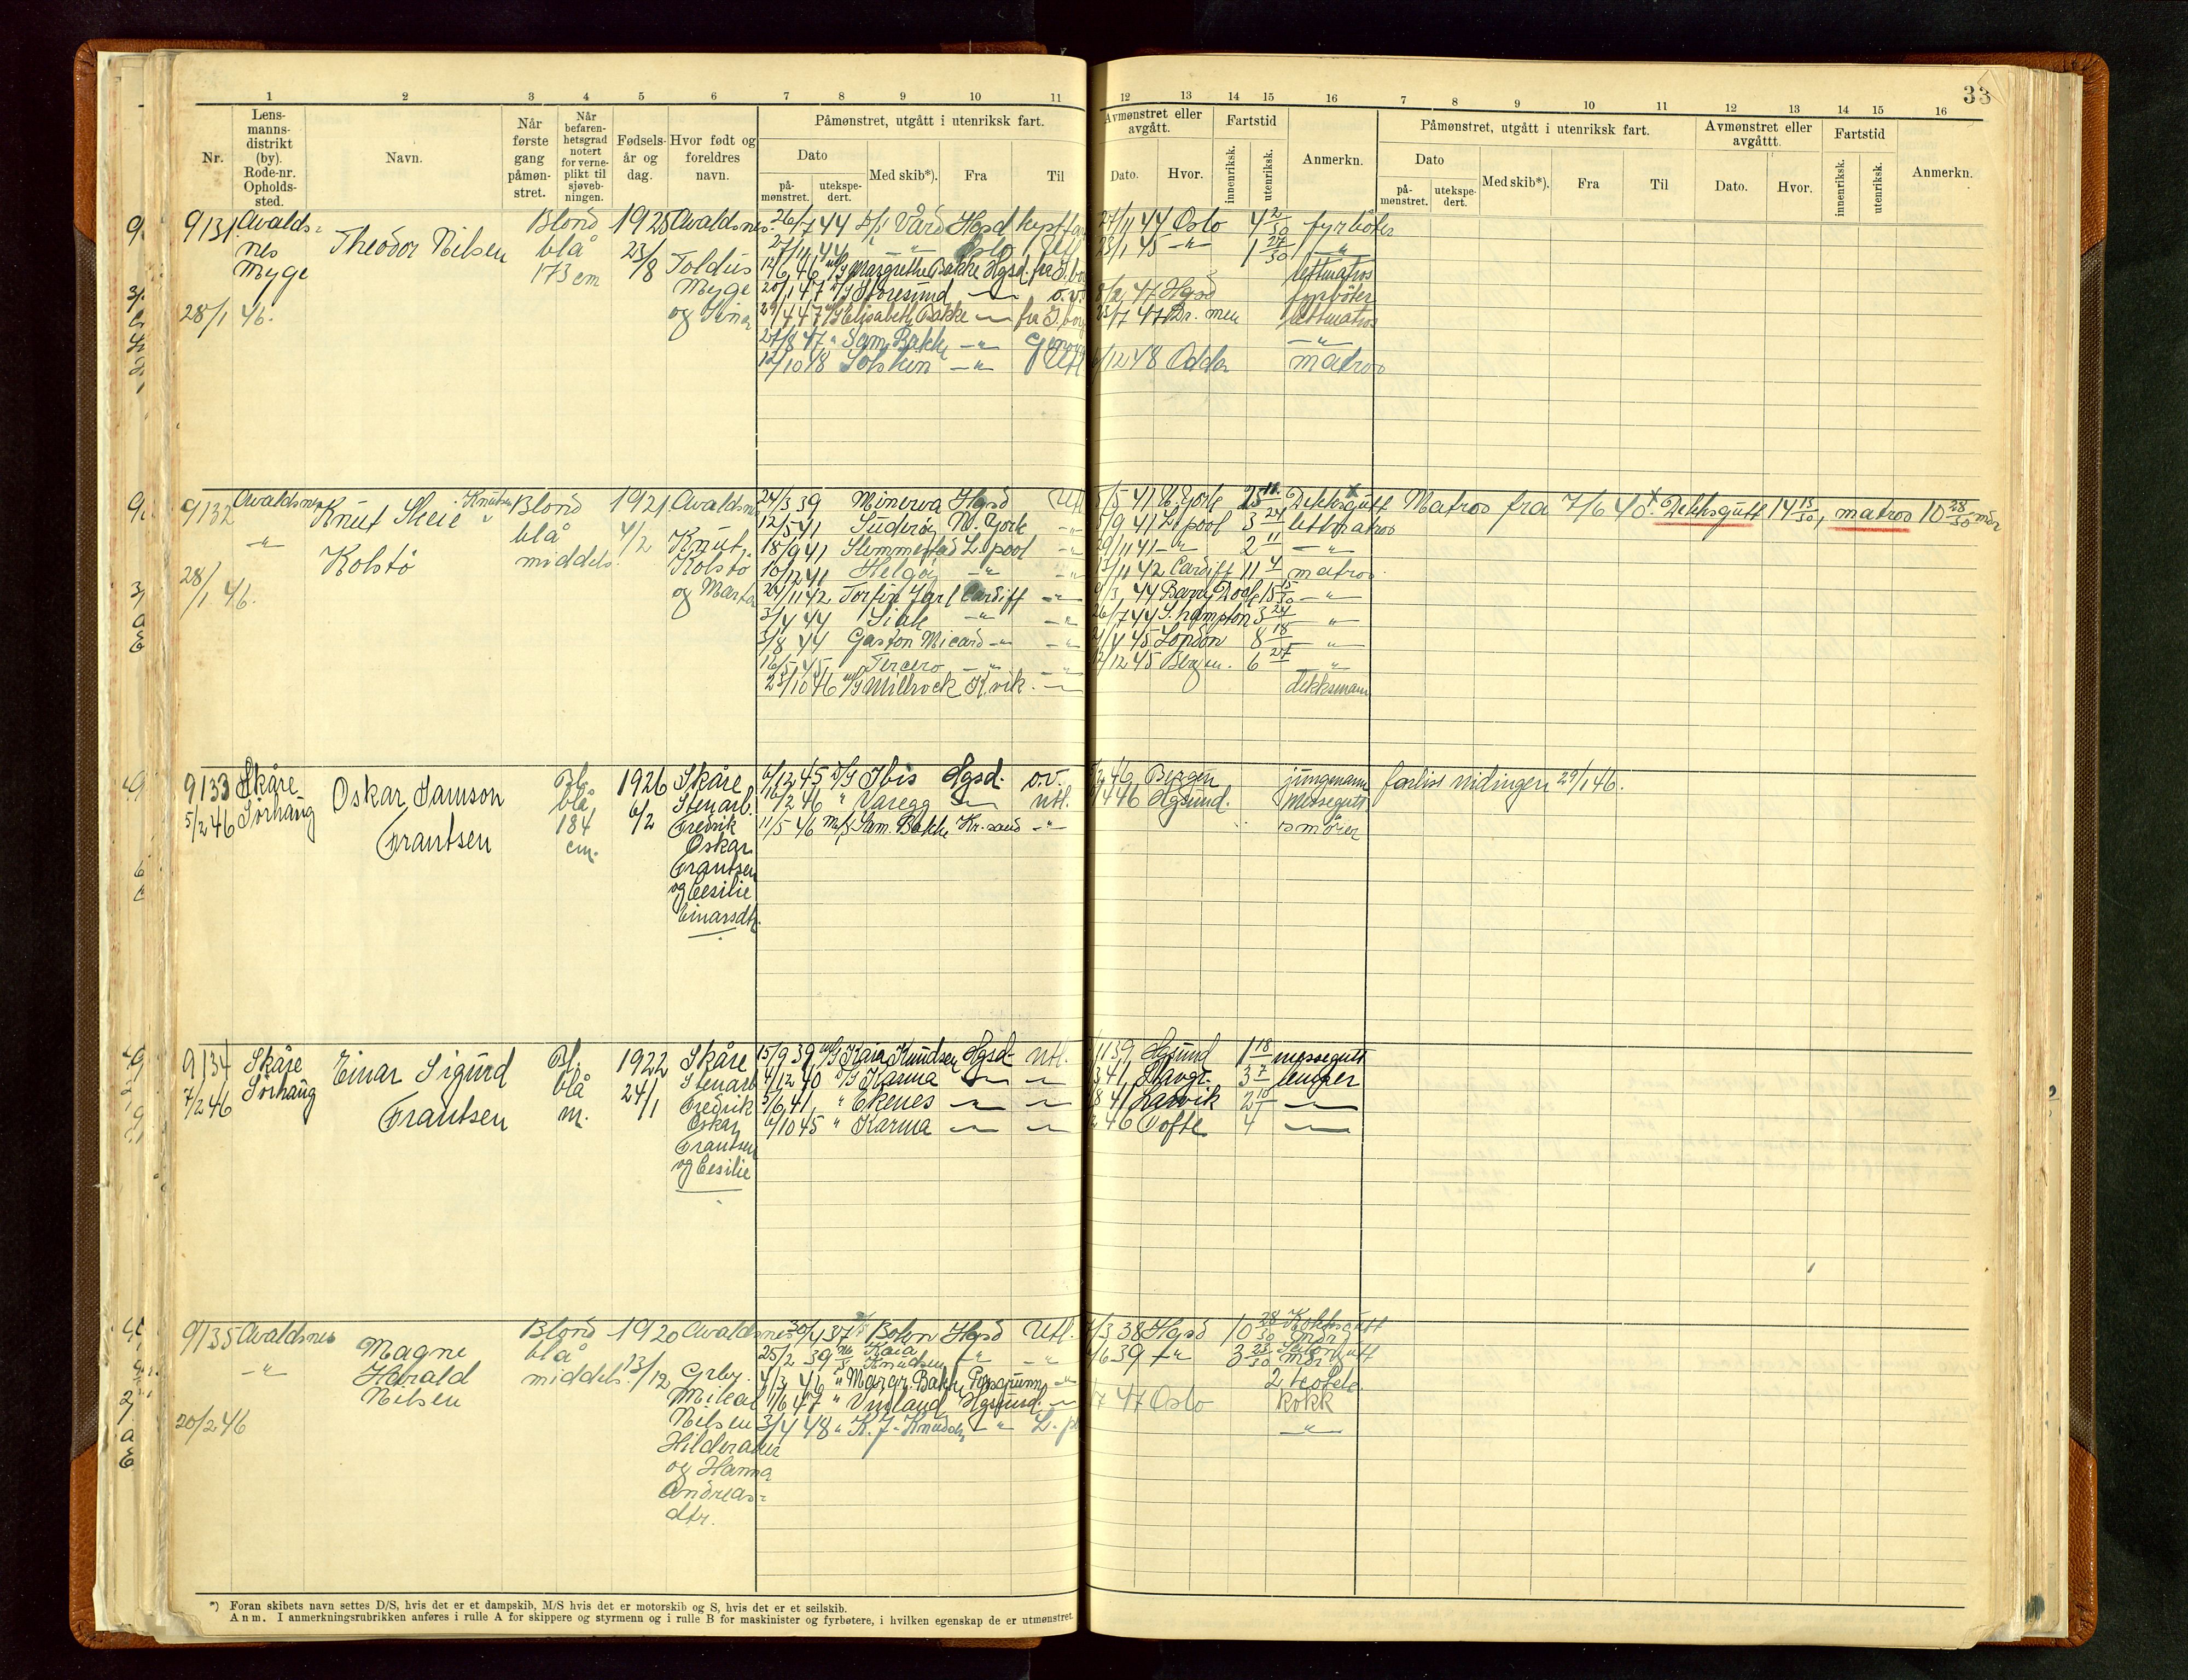 33
1 2 3 4 5 6 7 8 9 10 11
12 13 14 15 16 7 8 9 10 11 12 13 14 15 16
Nr.
Lens-
manns-
distrikt
(by).
Rode-nr.
Opholds-
sted.
Navn.
Når
første
gang
påmøn-
stret.
Når
befaren-
hetsgrad
notert
for verne-
plikt til
sjøveb-
ningen.
Fødsels-
år og
dag.
Hvor født og
foreldres
navn.
Påmønstret, utgått i utenriksk fart.
Dato
på-
mønstret.
utekspe-
dert.
Med skib*).
Fra
Til
Avmønstret eller
avgått.
Dato.
Hvor.
Fartstid
innenriksk.
utenriksk.
Anmerkn.
Påmønstret, utgått i utenriksk fart.
Dato
på-
mønstret.
utekspe-
dert.
Med skib*).
Fra
Til
Avmønstret eller
avgåttt.
Dato.
Hvor.
Fartstid
innenriksk.
utenriksk
Anmerkn.
9131 Avalds-
nes
Myge
28/1 46.
Theodor Nilsen
Blond
blå
173 cm
1925
23/8
Avaldsnes
Toldus
Myge
og Sina
26/7 44 D/S Vård Hgsd kystfart 27/11 44 Oslo 4 2/30 fyrbøter
27/11 44 " " Oslo Utl 23/1 45 " 1 27/30 "
12/6 46 M/S Margrethe Bakke Hgsd. lettmatros
20/1 47 D/S Storesund " 8/2 47 Hgsd fyrbøter
29/4 47 M/S Elisabeth Bakke " 47 Br. men lettmatros
27/8 47 " Sam. Bakke " "
12/10 48 Solskin " Utl 12 48 Odda matros
9132 Avaldsnes
"
28/1 46.
Knut Skeie Knutsen
Kolstö
Blond
blå
middels.
1921
4/2
Avaldsnes
Knut
Kolstö
og Marta
24/3 39 Minerva Hgsd Utl 5/5 41 N. York 25 Dekksgutt Matros fra 7/6 40 x. Dekksgutt 14 13/30, matros 10 28/30 mdr
12/5 41 Suderöy N. York " 5/9 41 L. pool 3 24 lettmatros
18/9 41 Slemmestad L. pool " 29/11 41 " 2 11 "
10/12 41 Helgöy " " 13/11 42 Cardiff 11 4 matros
24/11 42 Torfin Jarl Cardiff " 3 44 Barry Dock 15 15/30 "
3/4 44 Siak " " 26/7 44 S. hampton 3 24 "
3/8 44 Gaston Micard " " 21/4 45 London 8 18 "
16/5 45 Tercero " " 12/12 45 Bergen. 6 27 "
23/10 46 M/S Millrock K.vik. " dekksmann
9133 Skåre
5/2 46 Sörhaug
Oskar Samson
Frantsen
Bl.
blå,
184
cm.
1926
6/2
Skåre
Stenarb.
Fredrik
Oskar
Frantsen
og Cesilie
Einarsdtr.
6/12 45 D/S Ibis Hgsd. o.v. 2 46 Bergen jungmann forlist vidingen 29/1 46.
16/2 46 " Varegg " utl. 4 46 Hgsund. Messegutt
11/5 46 M/S Sam. Bakke Kr. sand " smörer
9134 Skåre
7/2 46 Sörhaug
Einar Sigurd
Frantsen
Bl.
blå
m.
1922
24/1
Skåre
Stenarb
Fredrik
Oskar
Frantsen
og Cesilie
15/9 39 M/S Kaia Knudsen Hgsd. Utl. 11 39 Hgsund 1 18 messegutt
4/12 40 D/S Karma " " 3 41 Stavgr. 3 7 lemper
5/6 41 " Ekenes " " 8 41 Larvik 2 "
6/10 45 " Karma " " 46 Tofte 4 "
9135 Avaldsnes
"
20/2 46
Magne
Harald
Nilsen
Blond
blå
middels.
1920
13/12
Avaldsnes
Grbr.
Mikal
Nilsen
Hilderaker
og Hanna
Andreas-
dtr.
30/4 37 Bokn Hgsd Utl. 7/3 38 Hgsd 10 28/30 Kokksgutt
25/2 39 M/S Kaia Knudsen " " 6 39 " 3 23/30
4/3 46 " Margr. Bakke Porsgrunn " 2 kokk
11/6 47 " Vinland Hgsund. " 7 47 Oslo kokk
3/4 48 " K. J. Knudsen " "
*) Foran skibets navn settes D/S, hvis det er et dampskib, M/S hvis det er motorskib og S, hvis det er et seilskib.
Anm. I anmerkningsrubrikken anføres i rulle A for skippere og styrmenn og i rulle B for maskinister og fyrbøtere, i hvilken egenskap de er utmønstret.